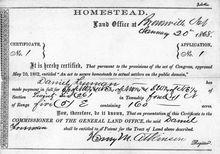 HOMESTEAD.
Land Office at Brownville Neb
January 20" 1868.
CERTIFICATE, No. 1
APPLICATION, No. 1
It is hereby certified, That pursuant to the provisions of the act of Congress, approved
May 20, 1862, entitled "An act to secure homesteads to actual settlers on the public domain,"
Daniel Freeman has
made payment in full for
Section Twenty six (26) in Township four (4) N
of Range five (5) E containing 160 acres
Now, therefore, be it known, That on presentation of this Certificate to the
COMMISSIONER OF THE GENERAL LAND OFFICE, the said Daniel
Freeman shall be entitled to a Patent for the Tract of Land above described.
Henry M. Atkinson